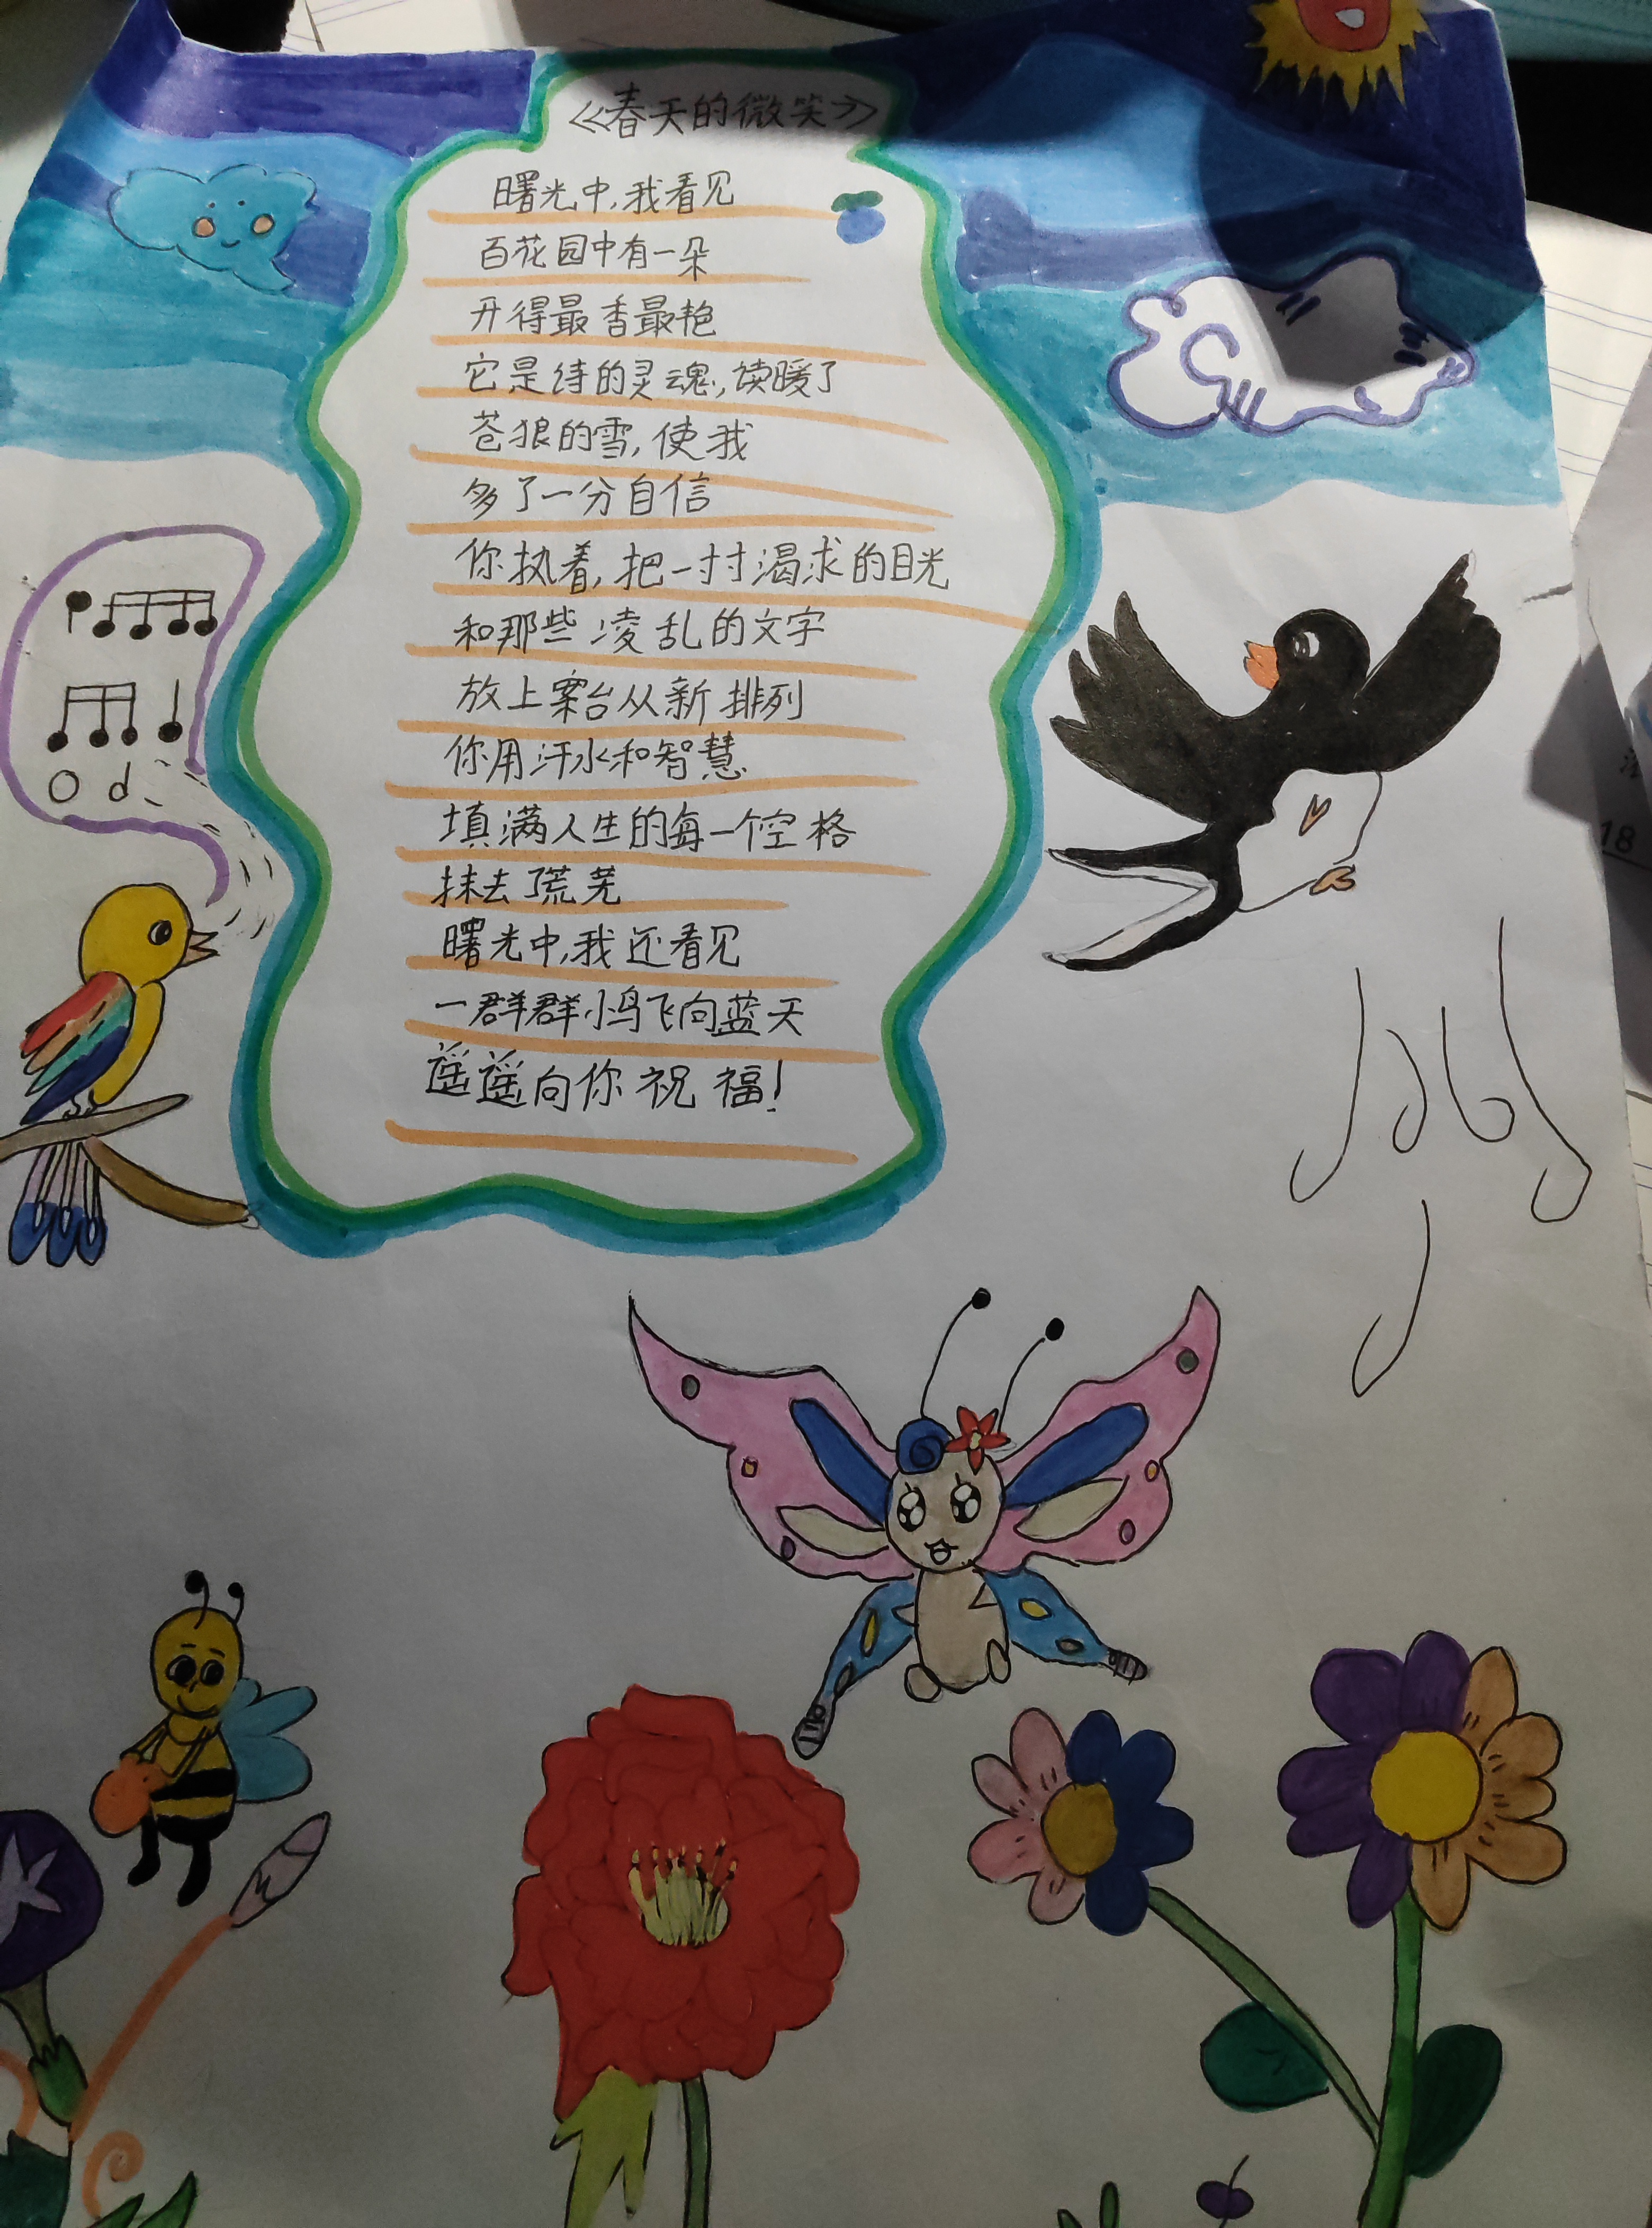 《春天的微笑》
曙光中,我看见
百花园中有一朵
开得最香最艳
它是诗的灵魂,读暖了
苍狼的雪,使我
多了一分自信
你执着,把一寸寸渴求的目光
和那些凌乱的文字
放上案台从新排列
你用汗水和智慧
填满人生的每一个空格
抹去了荒芜
曙光中,我还看见
一群群小鸟飞向蓝天
遥遥向你祝福!
18